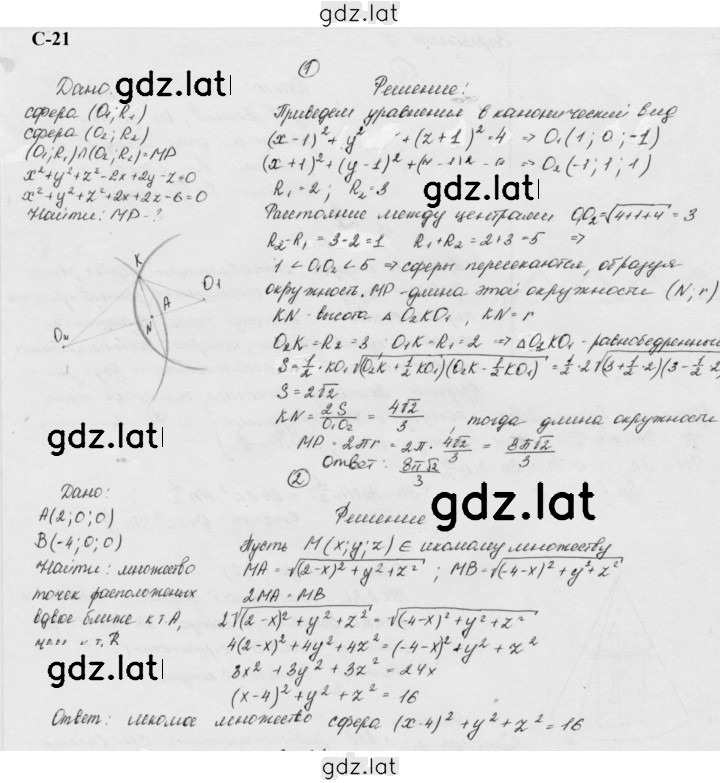 gdz.lat
С-21
①
gdz.lat
Дано:
сфера (O₁; R₁)
сфера (O₂; R₂)
(O₁; R₁)∩(O₂; R₂)=MP
x²+y²+z²-2x+2y-z=0
x²+y²+z²+2x+2z-6=0
Найти: MP-?
Решение:
Приведём уравнения в канонический вид
(x-1)²+y² +(z+1)²=4 ⇒ O₁(1; 0; -1)
(x+1)²+(y-1)²+ ⇒ O₂(-1; 1; 1)
gdz.lat
R₁=2; R₂=3
Расстояние между центрами O₁O₂=√4+1+4=3
R₂-R₁=3-2=1 R₁+R₂=2+3=5 ⇒
1<O₁O₂<5 ⇒ сферы пересекаются, образуя
окружность. MP-длина этой окружности (N; r)
KN-высота △O₂KO₁, KN=r
O₂K=R₂=3 O₁K=R₁=2 ⇒ △O₂KO₁-равнобедренный
S=1/2·KO₁√(O₂K+1/2KO₁)(O₂K-1/2KO₁)=1/2·2√(3+1/2·2)(3-1/2·2
S=2√2
KN=2S/O₁O₂=4√2/3, тогда длина окружности
MP=2πr=2π·4√2/3=8π√2/3
Ответ: 8π√2/3
K
O₁
A
O₂
N
gdz.lat
②
gdz.lat
Дано:
A(2; 0; 0)
B(-4; 0; 0)
Найти: множество
точек расположенных
вдвое ближе к т.A,
к т. B
gdz.lat
Решение
Пусть M(x; y; z) ∈ искомому множеству
MA=√(2-x)²+y²+z²; MB=√(-4-x)²+y²+z²
2MA=MB
2√(2-x)²+y²+z²=√(-4-x)²+y²+z²
4(2-x)²+4y²+4z²=(-4-x)²+y²+z²
3x²+3y²+3z²=24x
(x-4)²+y²+z²=16
Ответ: искомое множество сфера (x-4)²+y²+z²=16
gdz.lat